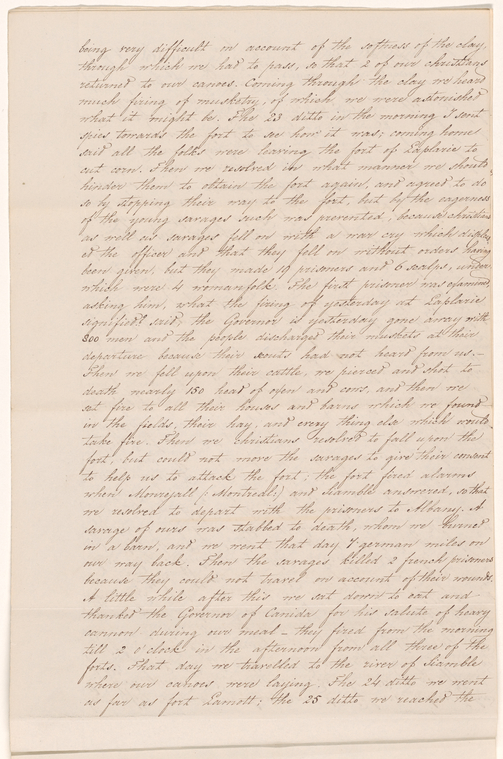 being very difficult on account of the softness of the clay,
through which we had to pass, so that 2 of our christians
returned to our canoes. Coming through the clay we heard
much firing of musketry, of which, we were astonished
what it might be. The 23 ditto in the morning I sent
spies towards the fort to see how it was; coming home
said all the folks were leaving the fort of Laplarie to
cut corn. Then we resolved in what manner we should
hinder them to obtain the fort again, and agreed to do
so by stopping their way to the fort, but by the eagerness
of the young savages such was prevented, because christians
as well as savages fell on with a war cry which
ed the officer and that they fell on without orders having
been given, but they made 19 prisoners and 6 scalps, under
which were 4 womanfolk. The first prisoner was examined,
asking him, what the firing of yesterday at Laplarie
signified? said; the Governor is yesterday gone away with
800 men and the people discharged their muskets at their
departure because their scouts had not heard from us.—
Then we fell upon their cattle, we pierced and shot to
death nearly 150 head of oxen and cows, and then we
set fire to all their houses and barns which we found
in the fields, their hay, and every thing else which would
take fire. Then we christians resolved to fall upon the
fort, but could not move the savages to give their consent
to help us to attack the fort; the fort fired alarms
when Monrejall (: Montreal:) and Siamble answered, so that
we resolved to depart with the prisoners to Albany. A
savage of ours was stabbed to death, whom we burned
in a barn, and we went that day 7 german miles on
our way back. Then the savages killed 2 french prisoners
because they could not travel on account of their wounds.
A little while after this we sat down to eat and
thanked the Governor of Canida for his salute of heavy
cannon during our meal – they fired from the morning
till 2 o'clock in the afternoon from all three of the
forts. That day we travelled to the river of Siamble
where our canoes were laying. The 24 ditto we went
as far as fort Lamott; the 25 ditto we reached the